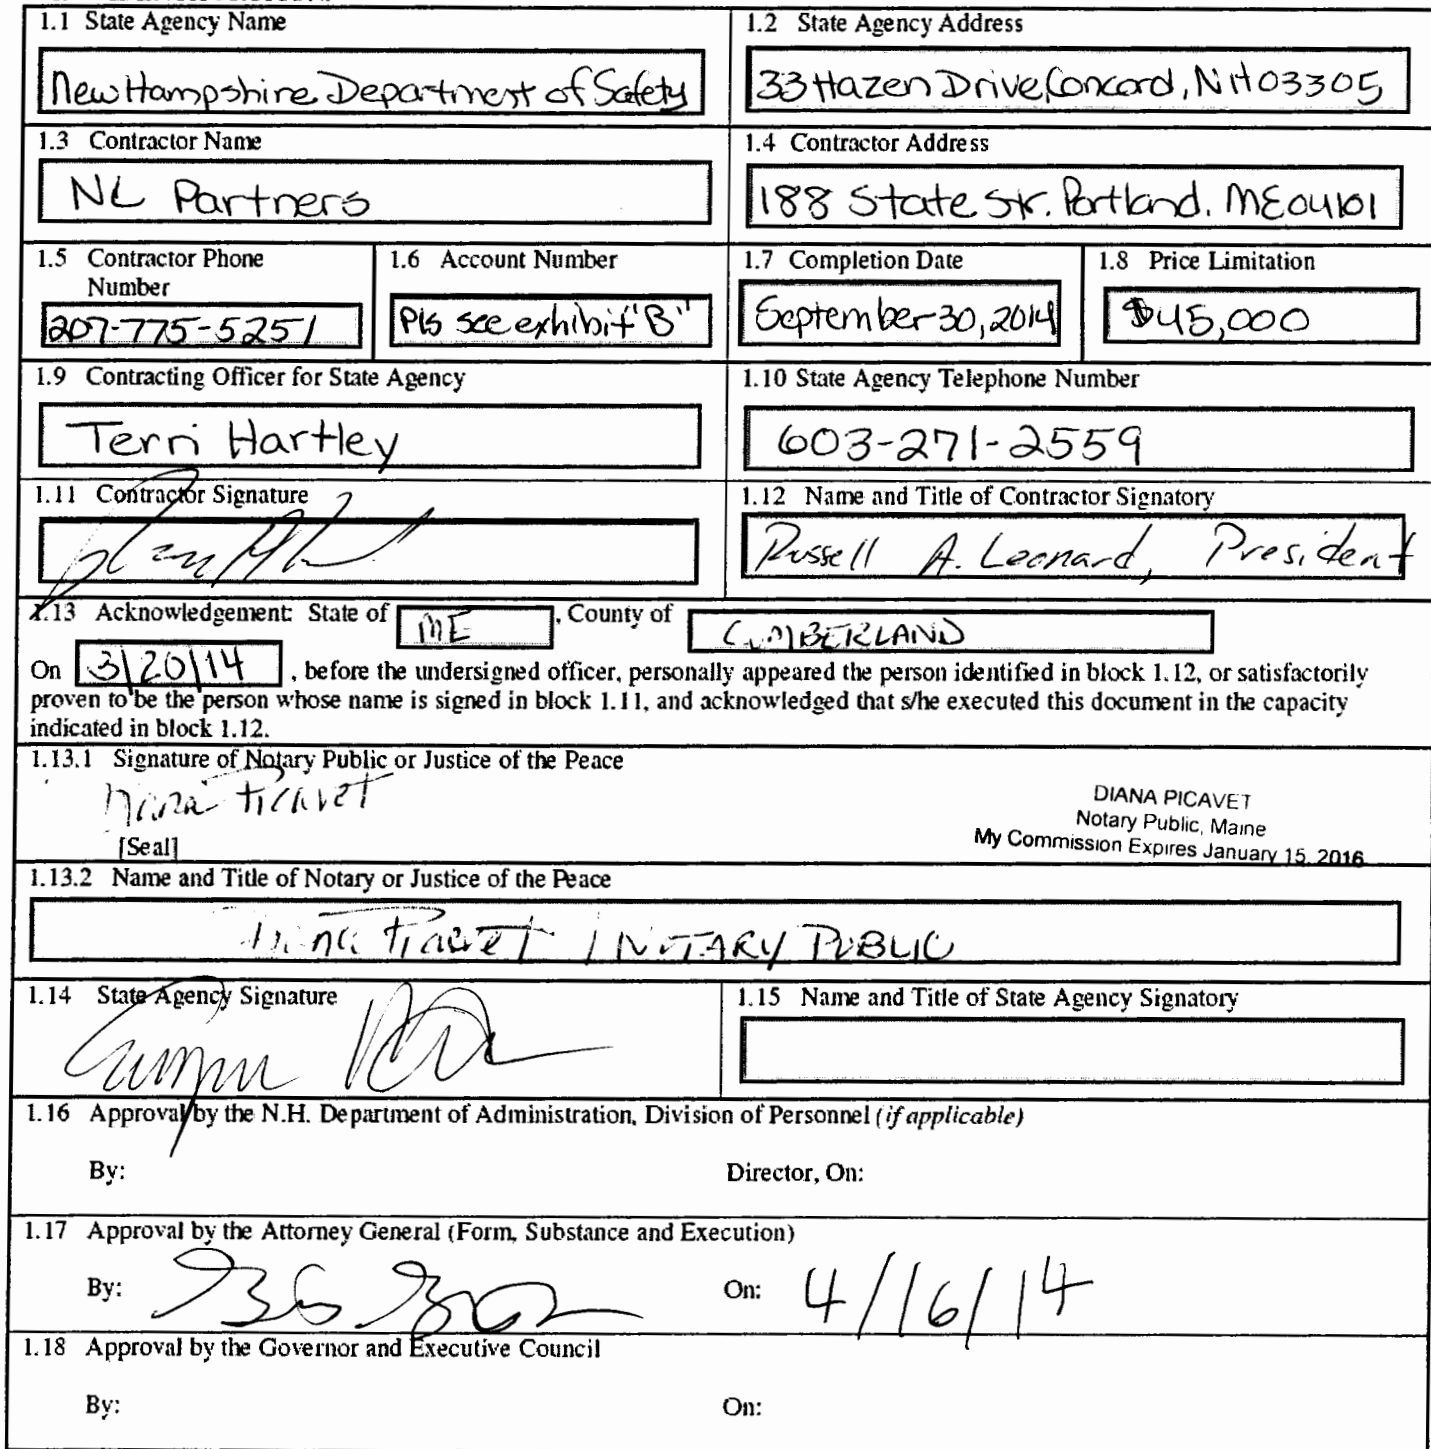 1.1 State Agency Name
New Hampshire Department of Safety
1.2 State Agency Address
33 Hazen Drive, Concord, NH 03305
1.3 Contractor Name
NL Partners
1.4 Contractor Address
188 State Str. Portland, ME 04101
1.5 Contractor Phone
Number
207-775-5251
1.6 Account Number
Pls see exhibit "B"
1.7 Completion Date
September 30, 2014
1.8 Price Limitation
$45,000
1.9 Contracting Officer for State Agency
Terri Hartley
1.10 State Agency Telephone Number
603-271-2559
1.11 Contractor Signature
1.12 Name and Title of Contractor Signatory
Russell A. Leonard, President
1.13 Acknowledgement: State of ME , County of CUMBERLAND
On 3/20/14 , before the undersigned officer, personally appeared the person identified in block 1.12, or satisfactorily
proven to be the person whose name is signed in block 1.11, and acknowledged that s/he executed this document in the capacity
indicated in block 1.12.
1.13.1 Signature of Notary Public or Justice of the Peace
Diana Picavet
[Seal]
DIANA PICAVET
Notary Public, Maine
My Commission Expires January 15, 2016
1.13.2 Name and Title of Notary or Justice of the Peace
Diana Picavet / NOTARY PUBLIC
1.14 State Agency Signature
1.15 Name and Title of State Agency Signatory
1.16 Approval by the N.H. Department of Administration, Division of Personnel (if applicable)
By: Director, On:
1.17 Approval by the Attorney General (Form, Substance and Execution)
By: On: 4/16/14
1.18 Approval by the Governor and Executive Council
By: On: